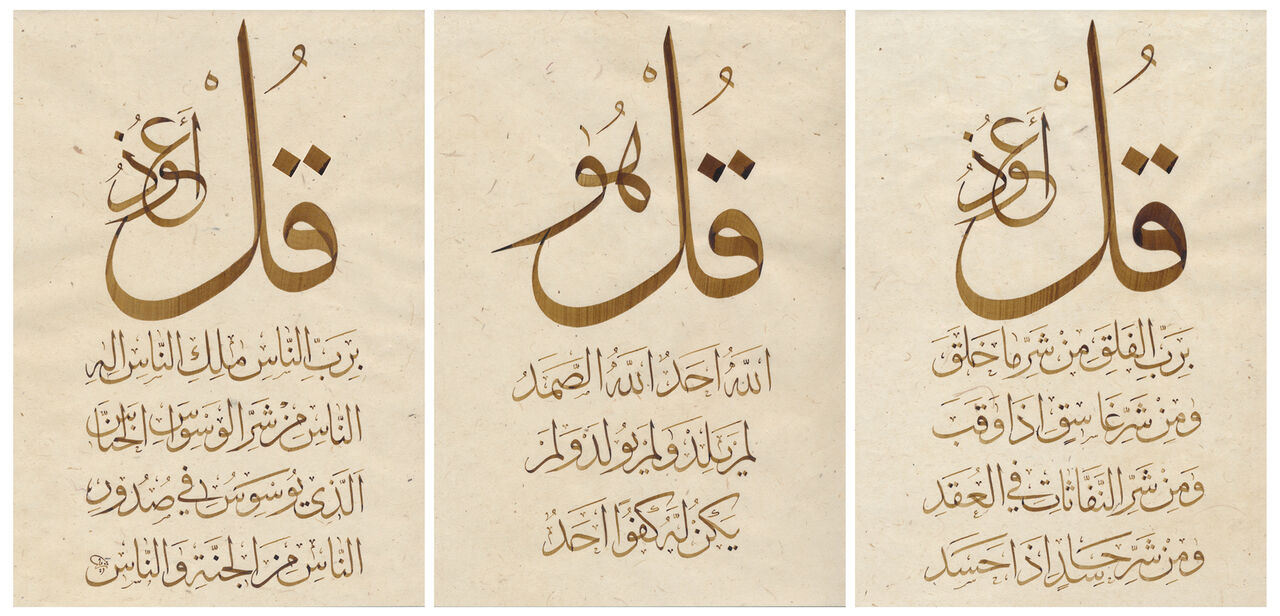 قُلْ أَعُوذُ
بِرَبِّ الفَلَقِ مِنْ شَرِّ ما خَلَقَ
وَمِنْ شَرِّ غَاسِقٍ اذَا وَقَبَ
وَمِنْ شَرِّ النَّفَّاثَاتِ فِي العُقَدِ
وَمِنْ شَرِّ حَاسِدٍ اذَا حَسَدَ
قُلْ هُوَ
اللّٰهُ احَدٌ اللّٰهُ الصَّمَدُ
لَمْ يَلِدْ وَلَمْ يُولَدْ وَلَمْ
يَكُنْ لَهُ كُفُوًا احَدٌ
قُلْ أَعُوذُ
بِرَبِّ النَّاسِ مَلِكِ النَّاسِ الهِ
النَّاسِ مِنْ شَرِّ الوَسْوَاسِ الخَنَّاسِ
الَّذِي يُوَسْوِسُ فِي صُدُورِ
النَّاسِ مِنَ الجِنَّةِ وَالنَّاسِ